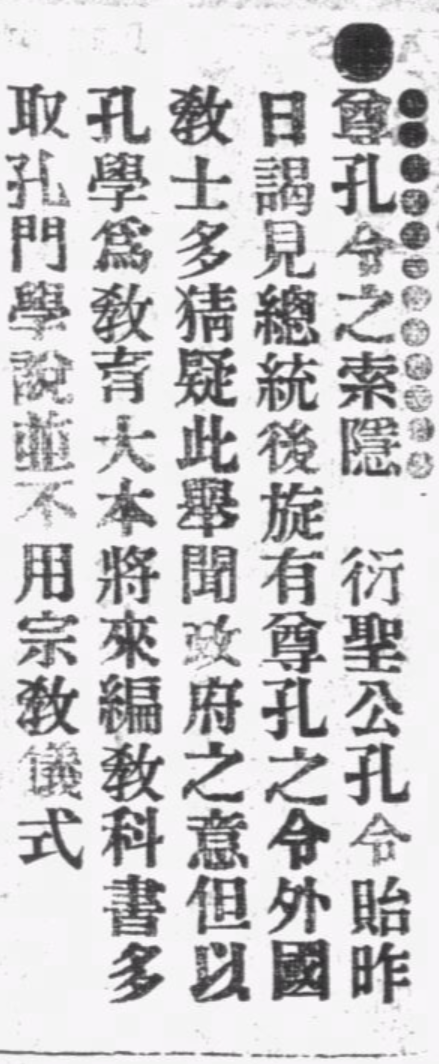 尊孔令之索隱　衍聖公孔令貽昨
日謁見總統後旋有尊孔之令外國
教士多猜疑此舉聞政府之意但以
孔學爲教育大本將來編教科書多
取孔門學說並不用宗教儀式